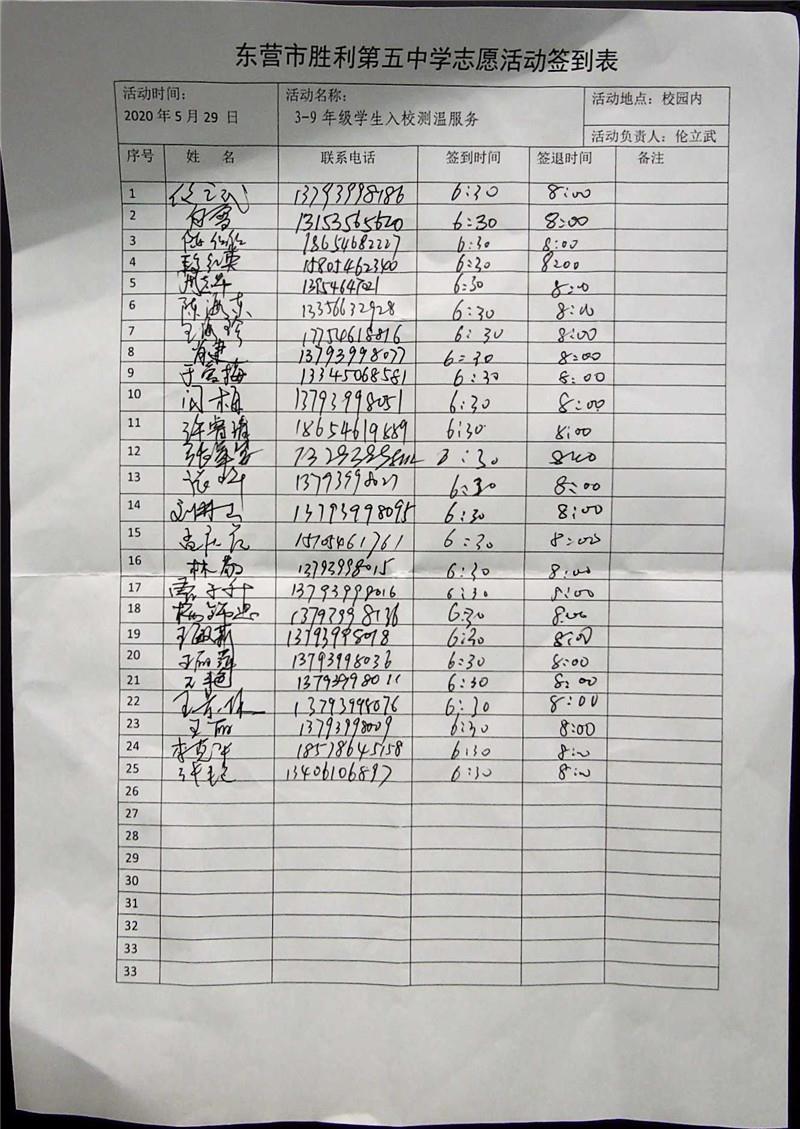 东营市胜利第五中学志愿活动签到表
活动时间： 活动名称： 活动地点：校园内
2020 年 5 月 29 日 3-9 年级学生入校测温服务
活动负责人：伦立武
序号 姓 名 联系电话 签到时间 签退时间 备注
1 伦立武 13793998186 6:30 8:00
2 白雪 13153565620 6:30 8:00
3 18654682227 6:30 8:00
4 15805462300 6:30 8:00
5 6:30 8:00
6 陈海东 13356632928 6:30 8:00
7 王海玲 17754618816 6:30 8:00
8 肖建 13793998077 6:30 8:00
9 于雪梅 13345068581 6:30 8:00
10 闫梅 13793998051 6:30 8:00
11 许睿靖 18654619889 6:30 8:00
12 8:00
13 13793998027 6:30 8:00
14 13793998095 6:30 8:00
15 15705461761 6:30 8:00
16 林勤 13793998015 6:30 8:00
17 13793998016 6:30 8:00
18 13793998136 6:30 8:00
19 王敏新 13793998018 6:30 8:00
20 王丽萍 13793998036 6:30 8:00
21 王艳 13793998011 6:30 8:00
22 13793998076 6:30 8:00
23 王丽 13793998009 6:30 8:00
24 李克军 18578645158 6:30 8:00
25 许艳 13406106897 6:30 8:00
26
27
28
29
30
31
32
33
33